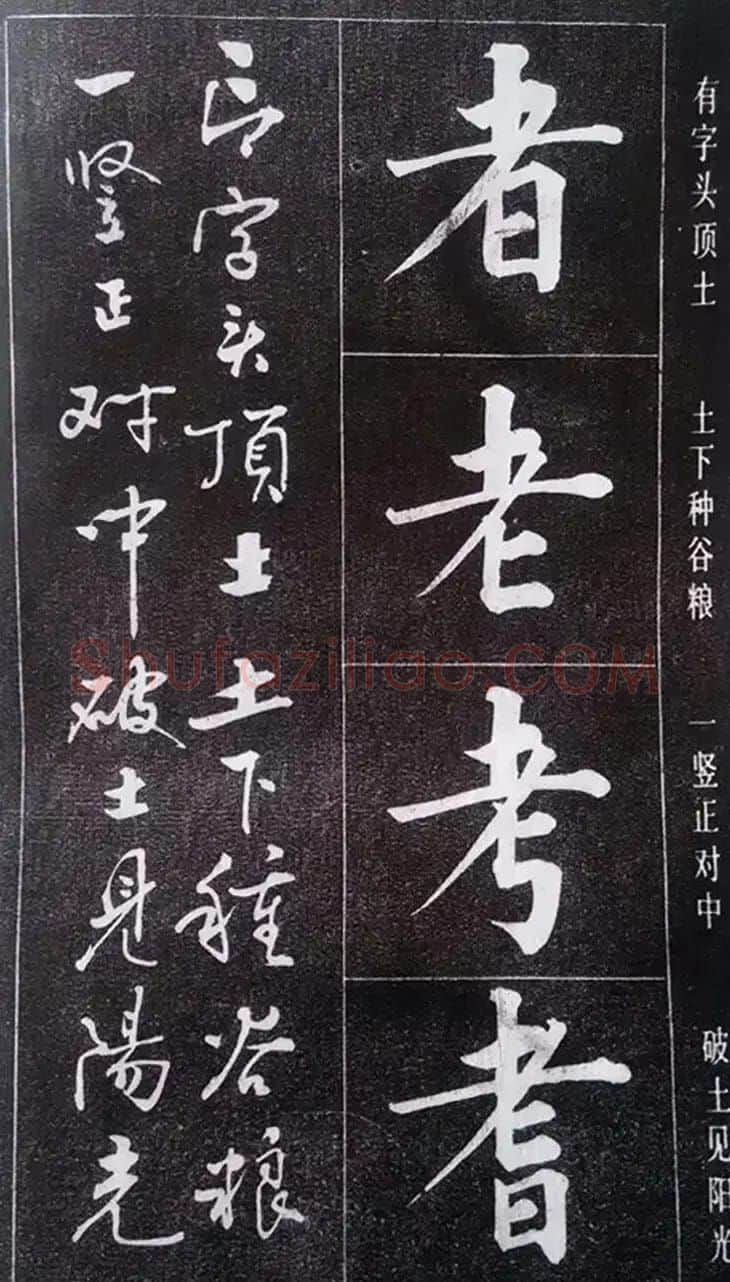 有字头顶土
土下种谷粮
一竖正对中
破土见阳光
者
老
考
耆
字头頂土土下種谷粮
一竖正对中破土見陽光
Shufaziliao.COM